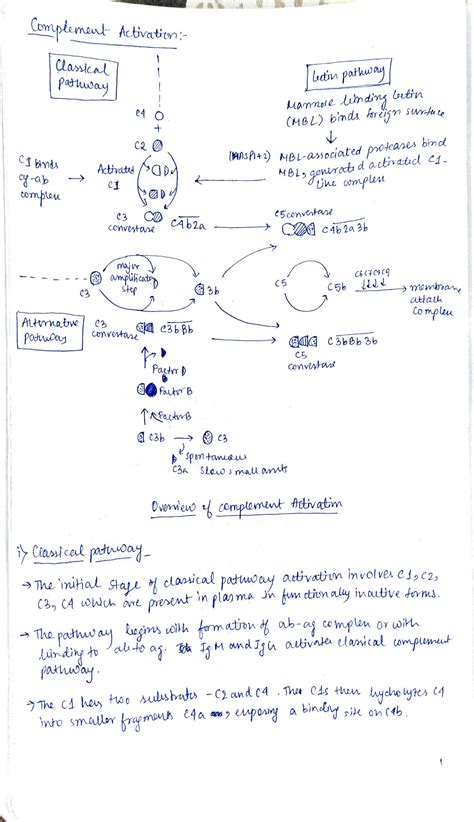 Complement Activation:-
Classical
Pathway
lectin pathway
Mannose binding lectin
(MBL) binds foreign surface
C4
+
C2
C1 binds
ag-ab
complex
Activated
C1
D
D
(MASP1+2) MBL-associated proteases bind
MBL, generated activated C1-
like complex
C3
convertase
C4b2a
C5 convertase
C4b2a3b
C3
major
amplification
step
3b
C5
C5b
C6C7C8C9
membrane
attach
complex
Alternative
pathway
C3
convertase
C3bBb
C3bBb3b
C5
convertase
Factor D
Factor B
Factor B
C3b
C3
spontaneous
C3a slow small amts
Overview of complement Activation
i) Classical pathway
→ The initial stage of classical pathway activation involves C1, C2,
C3, C4 which are present in plasma in functionally inactive forms.
→ The pathway begins with formation of ab-ag complex or with
binding to ab to ag. IgM and IgG activates classical complement
pathway.
→ The C1 has two substrates - C2 and C4. The C1s then hydrolyzes C4
into smaller fragments C4a, exposing a binding site on C4b.
1